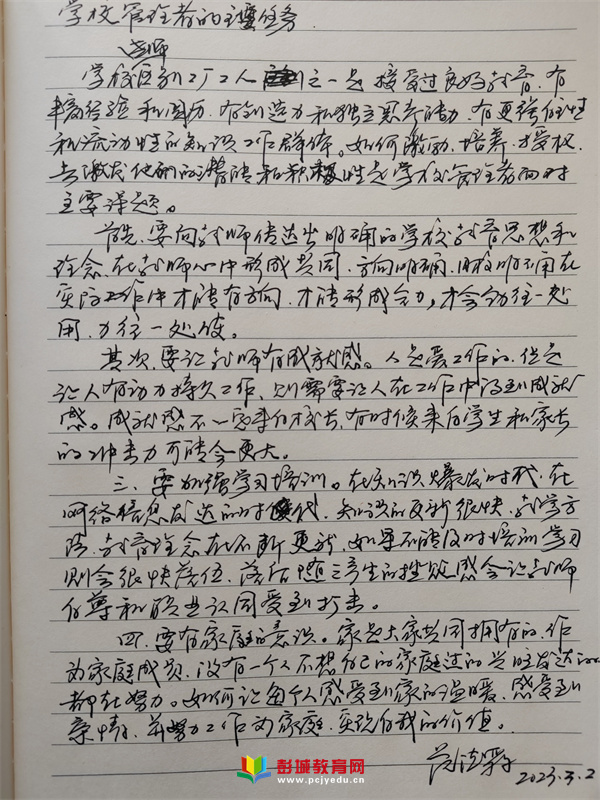 学校管理者的主要任务
老师
学校区别工厂工人之一是接受过良好教育、有
丰富经验和阅历、有创造力和独立思考能力、有更强个性
和流动性的知识工作群体。如何激励、培养、授权、
去激发他们的潜能和积极性是学校管理者面对
主要课题。
首先、要向教师传达出明确的学校教育思想和
理念、在教师心中形成共同、方向明确、目标明确在
实际工作中才能有方向、才能形成合力,才会劲往一处
用、力往一处使。
其次、要让教师有成就感。人是要工作的、但是
让人有动力持久工作、则需要让人在工作中得到成就
感。成就感不一定来自校长、有时候来自学生和家长
的冲击力可能会更大。
三、要加强学习培训。在知识爆发时代、在
网络信息发达的时代、知识的更新很快、教学方
法、教育理念在不断更新、如果不能及时培训学习
则会很快落伍、落后随之产生的挫败感会让教师
自尊和职业认同受到打击。
四、要有家庭的意识。家是大家共同拥有的、作
为家庭成员、没有一个人不想自己的家庭过的兴旺发达的
都在努力。如何让每个人感受到家的温暖、感受到
亲情、并努力工作为家庭、实现自我的价值。
2023.3.2
彭城教育网
www.pcjyedu.cn